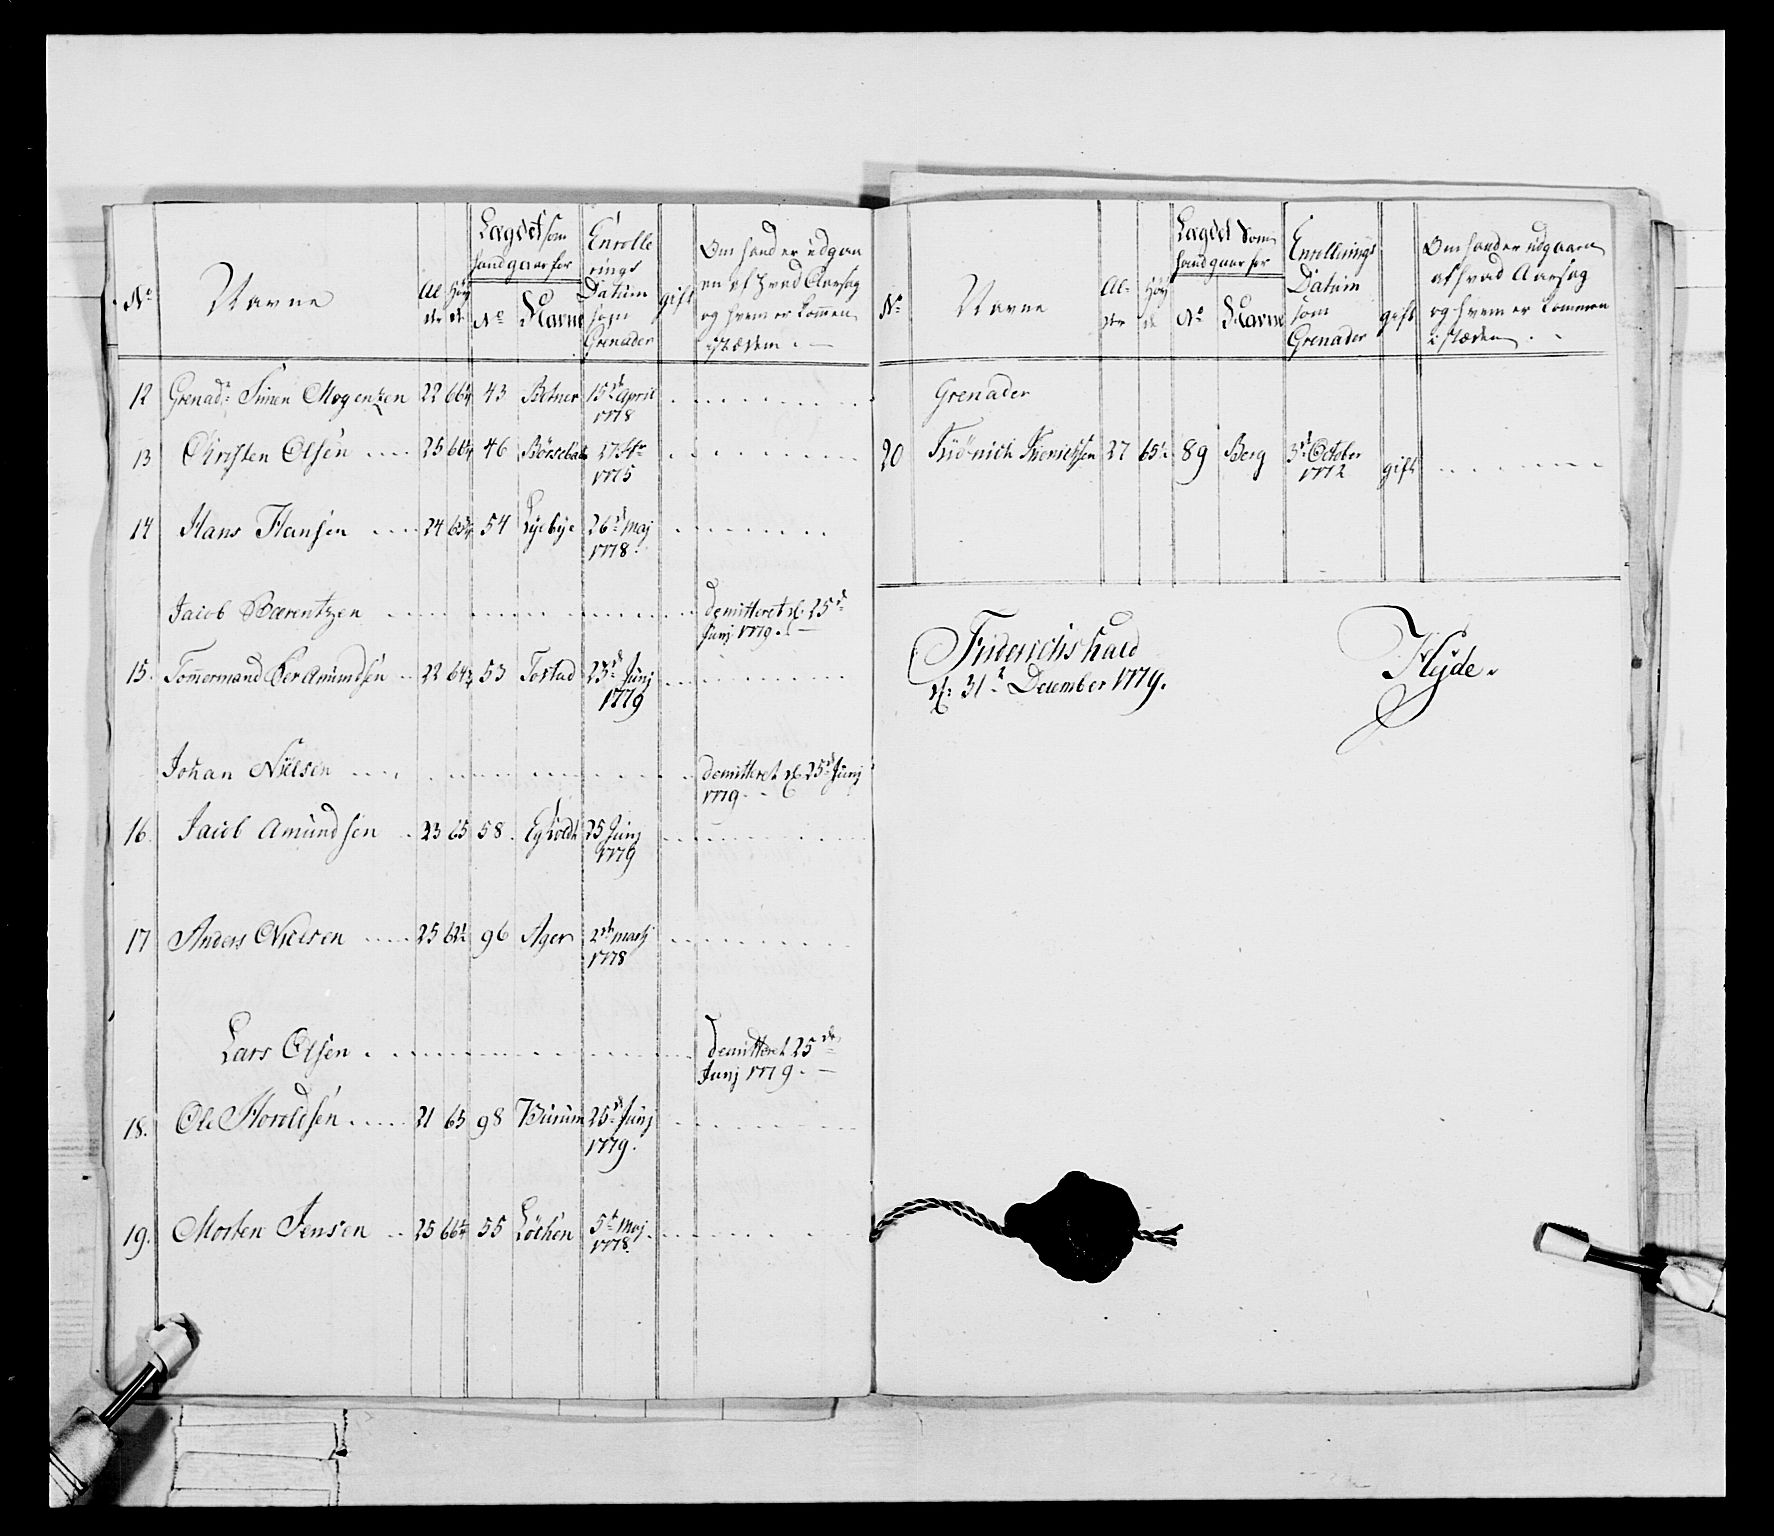 No Navne Al- der Höy de Lægdet som hand gaar for No Navne Enrolle rings Datum som Grenader gift Om hand er udgaa en af hvad Aarsag og hvem er kommen i stæden
12 Grenadr Simen Mogensen 22 66¼ 43 Botner 15de April
1778
13 Christen Olsen 25 66¼ 46 Börsebak
1775
14 Hans Hansen 24 65¾ 54 Lyebye 26de Maj
1778
Jacob Bærentzen demitteret d: 25de
Junj 1779
15. Tömmermand Per Amundsen 22 64¾ 53 Tostad 25de Junj
1779
Johan Nielsen demitteret d: 25de Junj
1779
16. Jacob Amundsen 23 65 58 25 Junj
1779
17 Anders Nielsen 25 62½ 96 Ager 2de Martj
1778
Lars Olsen demitteret 25de
Junj 1779
18. Ole 21 65 98 25de Junj
1779.
19. Morten Jensen 25 66¼ 55 Löchen 5te Maj
1778.
No Navne Al- der Höy de Lægdet som hand gaar for No Navne Enrollerings Datum som Grenader gift Om hand er udgaaen af hvad Aarsag og hvem er kommen i stæden
Grenader
20 Fridrich 27 65½ 89 Berg 3de October
1772 gift
Friderichshald
d: 31te December 1779.
Hejde.